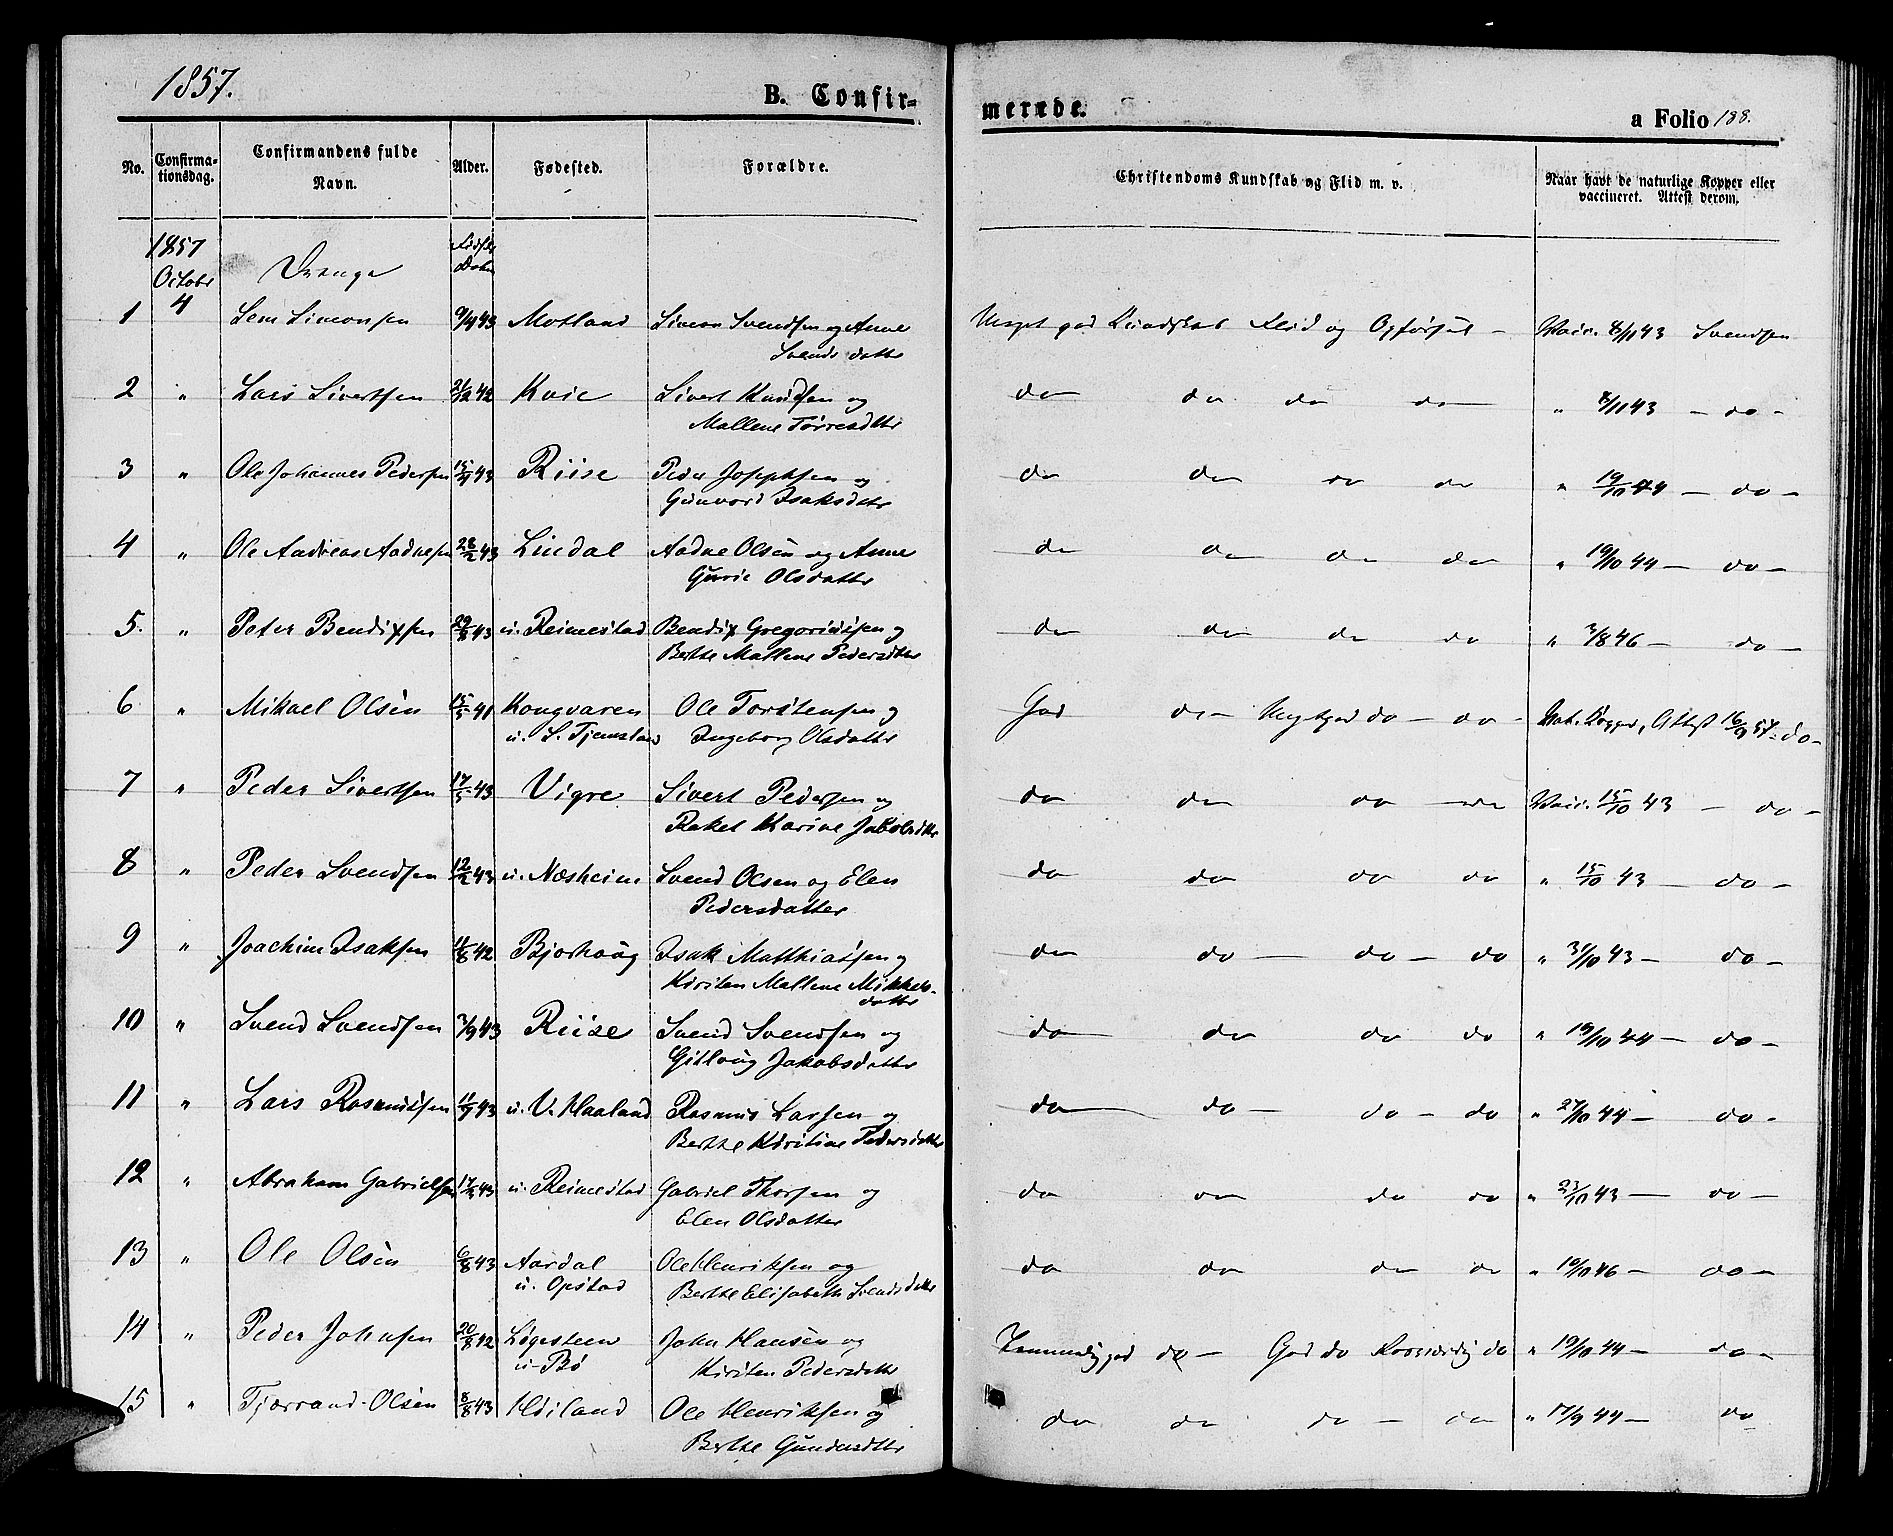 1857.
B. Confir=
merede.
a Folio 188.
No.
Confirma-
tionsdag.
Confirmandens fulde
Navn.
Alder.
Fødested.
Forældre.
Christendoms Kundskab og Flid m. v.
Naar havt de naturlige Kopper eller
vaccineret. Attest derom.
1857
Octobr
4
Drenge
Fødsels
Datum
1 Simonsen 9/4 43 Motland Simon Svendsen og Anne
Svendsdattr
Meget god Kundskab Flid og Opførsel – Vacc. 8/11 43 Svendsen
2 " Lars Sivertsen 21/12 42 Kvie Sivert Knudsen og
Mallene Torresdttr
do do do do " 8/11 43 – do –
3 " Ole Johannes Pedersen 43 Riise Peder Josephsen og
Gunvord Isaksdttr
do do do do " 19/10 44 – do –
4 " Ole Andreas Aadnesen 28/2 43 Lindal Aadne Olsen og Anne
Gurie Olsdattr
do do do do " 19/10 44 – do –
5. " Peter Bendixsen 43 u. Reimestad Bendix Gregoriusen og
Berthe Mallene Pedersdttr
do do do do " 3/8 46 – do –
6 " Mikael Olsen 15/5 41 Kongvaren
u. S. Tjemsland
Ole Torstensen og
Ingeborg Olsdattr
God do – Megetgod do – do – Nat. Kopper, Attest 16/9 57 – do –
7 " Peder Sivertsen 17/5 43 Vigre Sivert Pedersen og
Rakel Karine Jakobsdttr
do do do do Vacc. 15/10 43 – do –
8 " Peder Svendsen 12/2 43 u. Næsheim Svend Olsen og Elen
Pedersdatter
do do do do " 15/10 43 – do –
9 " Joachim Isaksen 11/8 42 Bjorhaug Isak Matthiasen og
Kirsten Mallene Mikkels-
dattr
do do – do – do " 31/10 43 – do –
10 " Svend Svendsen 3/9 43 Riise Svend Svendsen og
Gitlaug Jakobsdattr
do do do do " 19/10 44 – do –
11 " Lars Rasmusen 11/9 43 u. V. Haaland Rasmus Larsen og
Berthe Kirstine Pedersdttr
do do – do – do " 27/10 44 – do –
12 " Abraham Gabrielsen 43 u. Reimestad Gabriel Thorsen og
Elen Olsdatter
do do do do " 23/10 43 – do –
13 " Ole Olsen 6/8 43 Aardal
u. Opstad
Ole Henriksen og
Berthe Elisabeth Svendsdattr
do do do do " 19/10 46 – do –
14 " Peder Johnsen 20/8 42 Løgesteen
u. Bø
John Hansen og
Kirsten Pedersdattr
Temmelig god do – God do Roesværdig do " 19/10 44 – do –
15 " Tjærrand Olsen 8/8 43 Høiland Ole Henriksen og
Berthe Gundersdttr
do do do – do " 17/9 44 – do